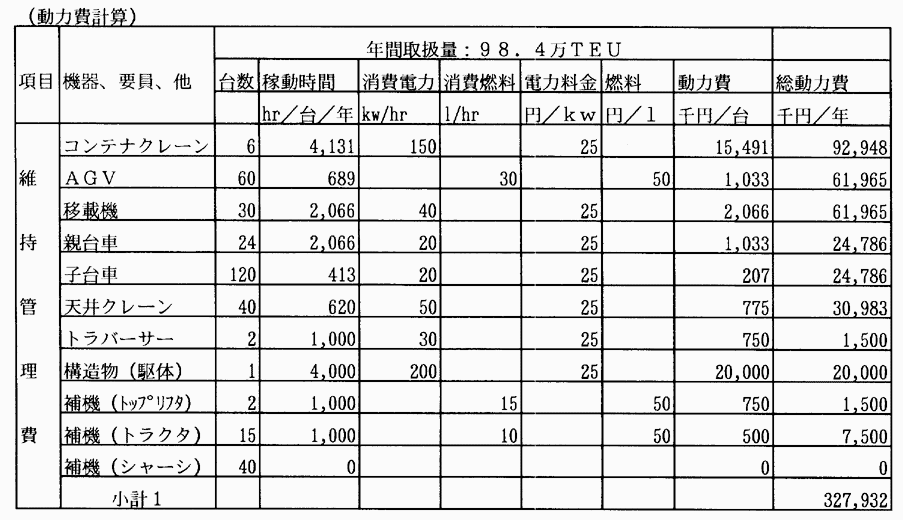 (動力費計算)
年間取扱量:98.4万TEU
項目 機器、要員、他 台数 稼動時間 消費電力 消費燃料 電力料金 燃料 動力費 総動力費
hr/台/年 kw/hr l/hr 円/kw 円/l 千円/台 千円/年
コンテナクレーン 6 4,131 150 25 15,491 92,948
維 AGV 60 689 30 50 1,033 61,965
移載機 30 2,066 40 25 2,066 61,965
持 親台車 24 2,066 20 25 1,033 24,786
子台車 120 413 20 25 207 24,786
管 天井クレーン 40 620 50 25 775 30,983
トラバーサー 2 1,000 30 25 750 1,500
理 構造物(駆体) 1 4,000 200 25 20,000 20,000
補機(トップリフタ) 2 1,000 15 50 750 1,500
費 補機(トラクタ) 15 1,000 10 50 500 7,500
補機(シャーシ) 40 0 0 0
小計1 327,932